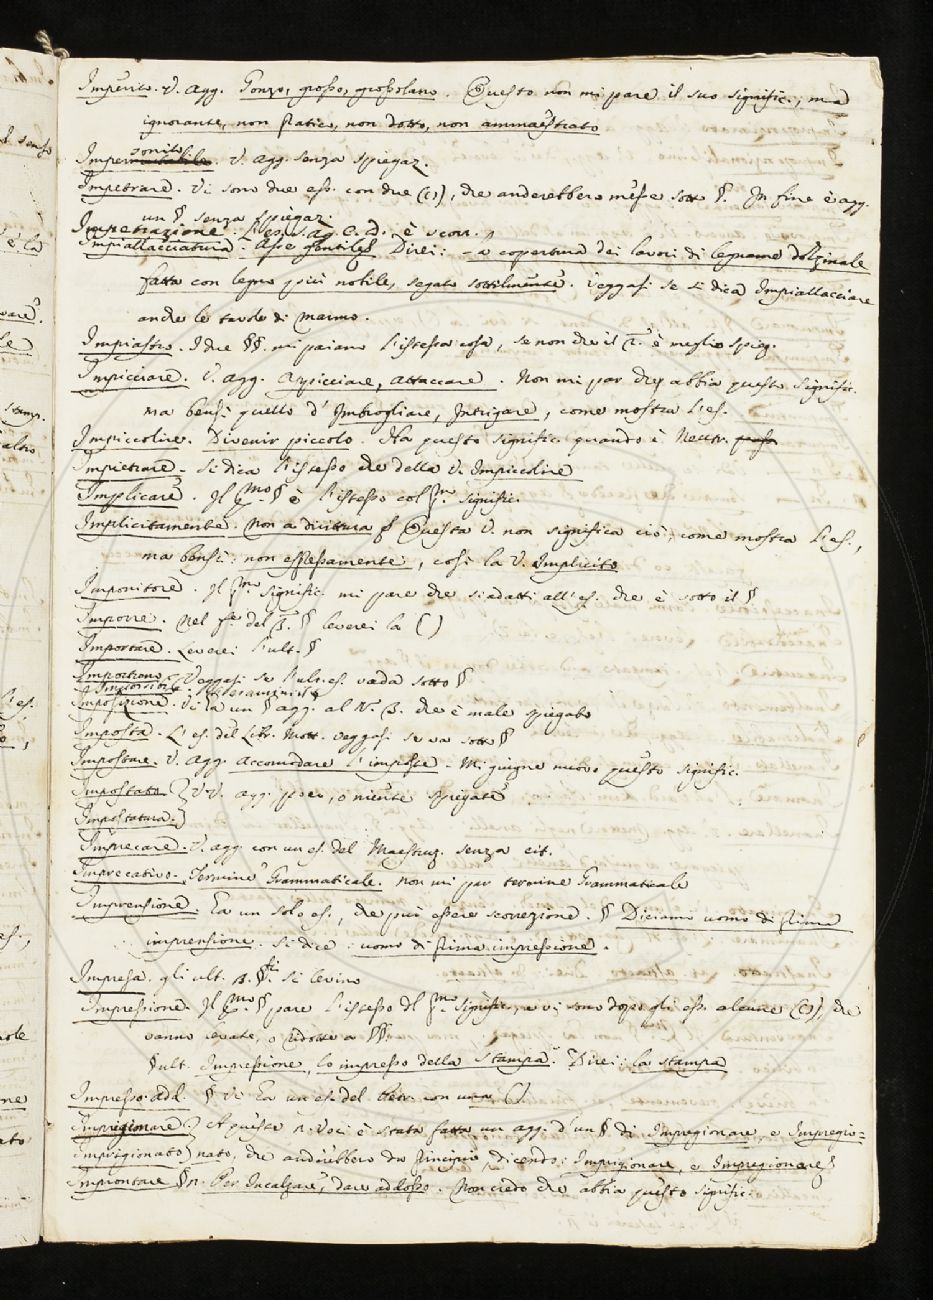 Imperito. V. agg. Gonzo, grosso, grossolano. Questo non mi pare il suo signific.; ma
ignorante, non pratico, non dotto, non ammaestrato
V. agg. senza spiegaz.
Impetrare. Vi sono due es. con due (), che anderebbero messe sotto §. In fine è agg.
un §. senza spiegaz.
Impetrazione.
Impiallacciatura. Direi: copertura dei lavori di legname dolzinale
fatta con legno più nobile, segato sottilmente. Veggasi se si dica Impiallacciare
anche le tavole di marmo.
Impiastro. I due §§. mi paiano l'istessa cosa, se non che il 2.° è meglio spieg.
Impicciare. V. agg. Appicciare, attaccare. Non mi par che abbia questo signific.
ma bensì quello d'Imbrogliare, Intrigare, come mostra l'es.
Impiccolire. Divenir piccolo. Ha questo signific. quando è Neutr.
Impietrare. Si dica l'istesso che della V. Impiccolire
Implicare. Il 2.mo § è l'istesso col p.mo signific.
Implicitamente. Non a dirittura § Questa V. non significa ciò, come mostra l'es.,
ma bensì: non espressamente, così la V. Implicito
Imponitore. Il p.mo signific. mi pare che si adatti all'es. che è sotto il §
Imporre. Nel del B. § leverei la ()
Importare. Leverei l'ult. §
Veggasi se l'ult. es. vada sotto §
Imposizione. Vi ha un § agg. al N. B. che è male spiegato
Imposta. L'es. del Libr. Mott. veggasi se va sotto §
Impostare. V. agg. Accomodare l'imposte. Mi giugne nuovo questo signific.
Impostato } VV. agg. poco, o niente spiegate
Impostatura }
Imprecare. V. agg. con un es. del Maestruz. senza cit.
Imprecativo. Termine Grammaticale. Non mi par termine Grammaticale
Imprensione. Ha un solo es., che può essere scorrezione. § Diciamo uomo di prima
imprensione. Si dice: uomo di prima impressione.
Impresa. gli ult. 3. § si levino
Impressione. Il 2.mo § pare l'istesso del p.mo signific., e vi sono dopo gli es. alcune (), che
vanno levate, o ridotte a §§.
§ ult. Impressione, lo impresso della Stampa. Direi: la stampa
Impresso. add. § Vi ha un es. del con una ()
Imprigionare } A queste 2. Voci è stata fatta un agg. d'un § di Impregionare, e Impregio=
Imprigionato } nato, che anderebbero da principio, dicendo: Imprigionare, e Impregionare §
Improntare § Per Incalzare, dare addosso. Non credo che abbia questo signific.